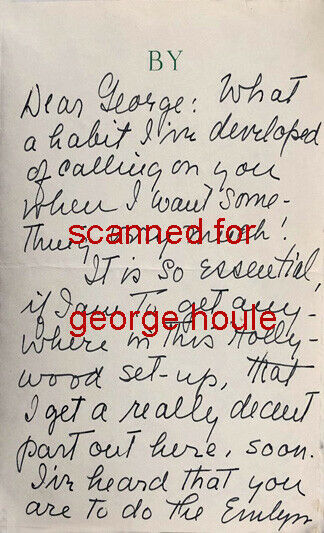 BY
Dear George: What
a habit I've developed
of calling on you
when I want some-
thing very much!
scanned for
It is so essential,
if I am to get any-
george houle
where in this Holly-
wood set-up, that
I get a really decent
part out here, soon.
I've heard that you
are to do the Emlyn